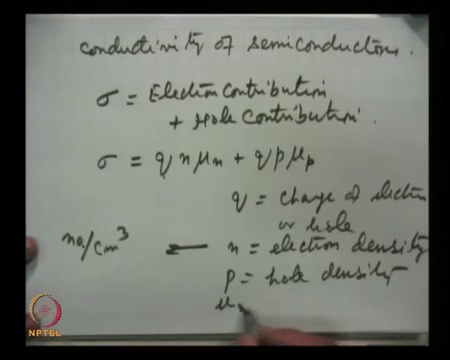 conductivity of semiconductors.
σ = Electron contribution
+ Hole contribution.
σ = q n μn + q p μp
q = charge of electron
or hole
no/cm³ ← n = electron density
p = hole density
μn
NPTEL